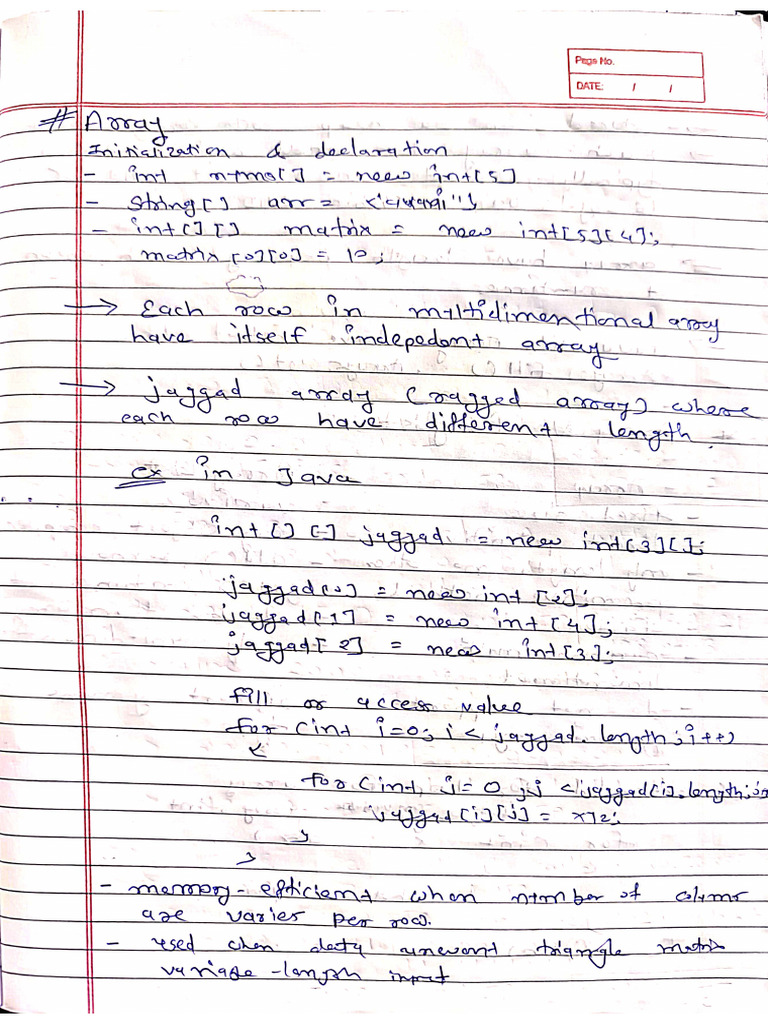 Page No.
DATE: / /
# Array
Initialization & declaration
- int nums[] = new int[5]
- String[] arr = {" "};
- int[][] matrix = new int[5][4];
matrix[0][0] = 10;
→ Each row in multidimentional array
have itself indepedent array
→ jaggad array (ragged array) where
each row have different length.
ex in Java
int[][] jaggad = new int[3][];
jaggad[0] = new int[2];
jaggad[1] = new int[4];
jaggad[2] = new int[3];
fill or access value
for (int i=0; i < jaggad.length; i++)
{
for (int j = 0; j < jaggad[i].length; j
jaggad[i][j] =
}
}
- memory-efficient when number of colums
are varies per row.
- used when data triangle matrix
variable-length input